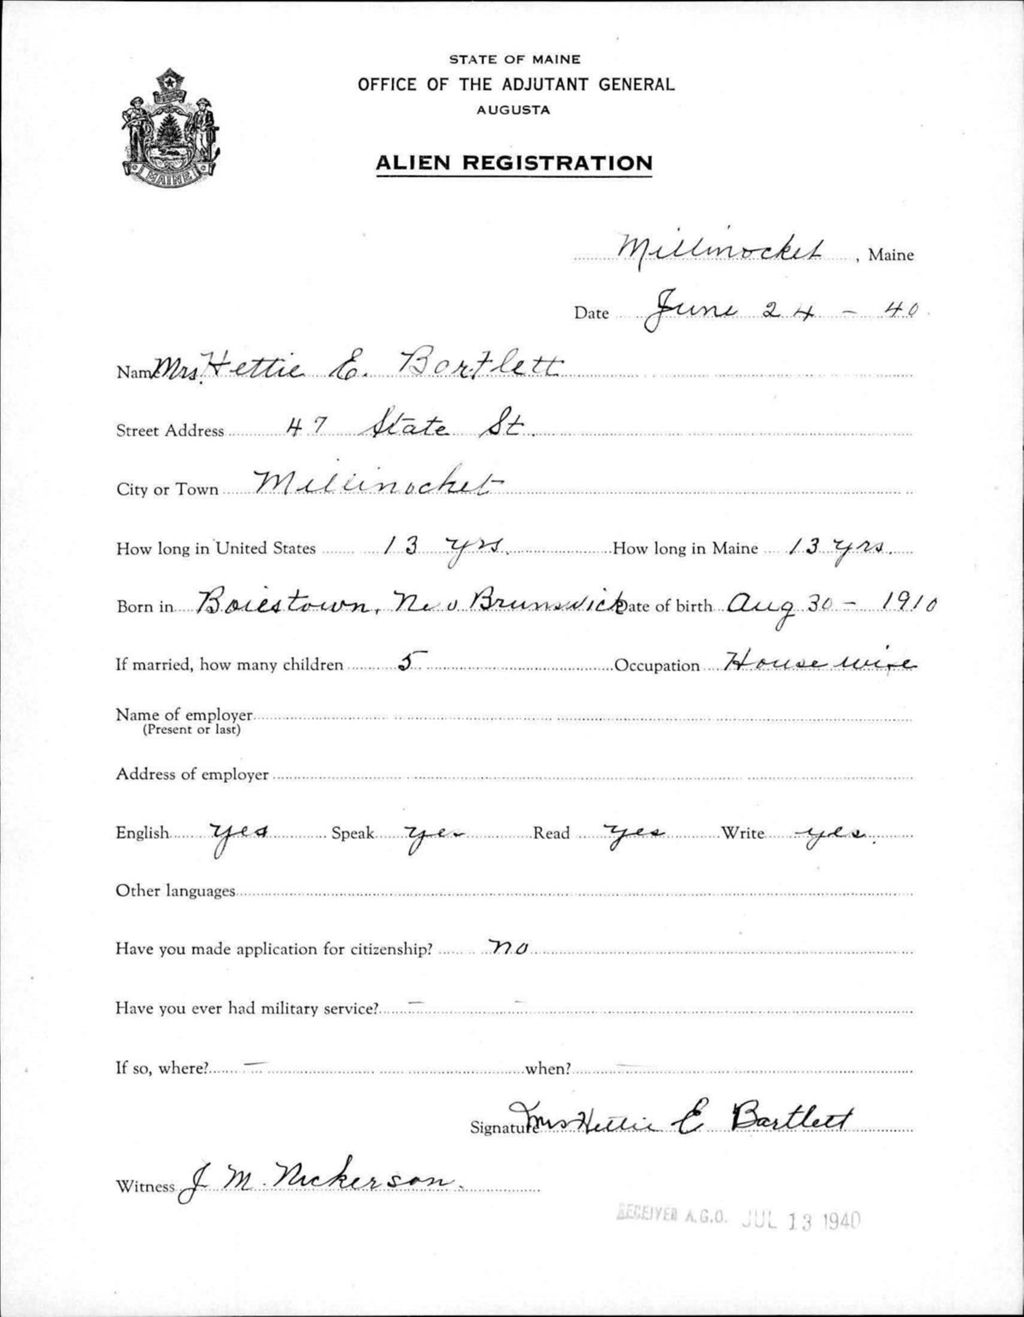 STATE OF MAINE
OFFICE OF THE ADJUTANT GENERAL
AUGUSTA
ALIEN REGISTRATION
MAINE
Millinocket, Maine
Date June 24 - 40
Name Mrs. Hettie E. Bartlett
Street Address 47 State St.
City or Town Millinocket
How long in United States 13 yrs. How long in Maine 13 yrs.
Born in Boiestown, New Brunswick Date of birth Aug 30 - 1910
If married, how many children 5 Occupation House wife
Name of employer
(Present or last)
Address of employer
English yes Speak yes Read yes Write yes.
Other languages
Have you made application for citizenship? no
Have you ever had military service? — -
If so, where? — when? —
Signature Mrs Hettie E Bartlett
Witness J. M. Nickerson.
RECEIVED A.G.O. JUL 13 1940